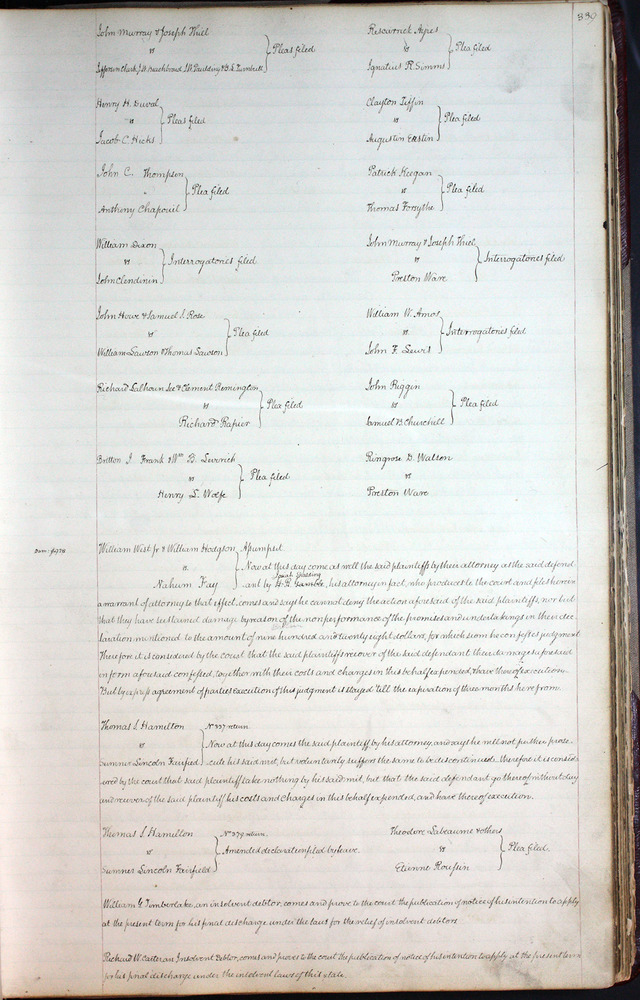 339
John Murray & Joseph Thiel
vs
Pleas filed
Henry H. Duval
vs
Pleas filed
Jacob C. Hicks
John C. Thompson
Plea filed
Anthony
William Dixon
vs
Interrogatories filed
John Clendinin
John Howe & Samuel S. Rose
vs
Plea filed
William Lawson & Thomas Lawson
Richard Calhoun Lee & Clement Remington
vs
Plea filed
Richard Rapier
Britton J. Frank & Wm B.
vs
Plea filed
Henry L. Wolfe
vs
Plea filed
Ignatius R. Simms
Clayton Tiffin
vs
Plea filed
Augustin
Patrick
vs
Plea filed
Thomas Forsythe
John Murray & Joseph Thiel
vs
Interrogatories filed
Preston Ware
William W. Amos
vs
Interrogatories filed
John F. Lewis
John Riggin
vs
Plea filed
Samuel B Churchill
Ringrose D. Watson
vs
Preston Ware
Dam: $928
William West jr & William Hodgson Assumpsit
vs. Now at this day come as well the said plaintiffs by their attorney as the said defend-
Nahum Fay ant by H. R. Gamble, his attorney in fact, who produces to the court and files herein
a warrant of attorney to that effect, comes and says he cannot deny the action aforesaid of the said plaintiffs, nor but
that they have sustained damage by reason of the nonperformance of the promises and undertakings in their dec-
laration mentioned to the amount of nine hundred and twenty eight dollars, for which sum he confesses judgment
Therefore it is considered by the court that the said plaintiffs recover of the said defendant their damages aforesaid
in form aforesaid confessed, together with their costs and charges in this behalf expended, & have thereof execution.
But by express agreement of parties execution of this judgment is stayed 'till the expiration of three months here from.
Thomas S Hamilton No 337 return
vs Now at this day comes the said plaintiff by his attorney, and says he will not further prose-
Sumner Lincoln Fairfield cute his said suit, but voluntarily suffers the same to be discontinued. Therefore it is consid-
ered by the court that said plaintiff take nothing by his said suit, but that the said defendant go thereof without day
and recover of the said plaintiff his costs and charges in this behalf expended, and have thereof execution.
Thomas S Hamilton No 379 return
vs Amended declaration filed by leave.
Sumner Lincoln Fairfield
Theodore Labeaume & others
vs Plea filed.
Etienne
William G Timberlake, an insolvent debtor, comes and prove to the court the publication of notice of his intention to apply
at the present term for his final discharge under the laws for the relief of insolvent debtors
Richard W. Carter an Insolvent Debtor, comes and proves to the court the publication of notice of his intention to apply at the present term
for his final discharge under the insolvent laws of this state.